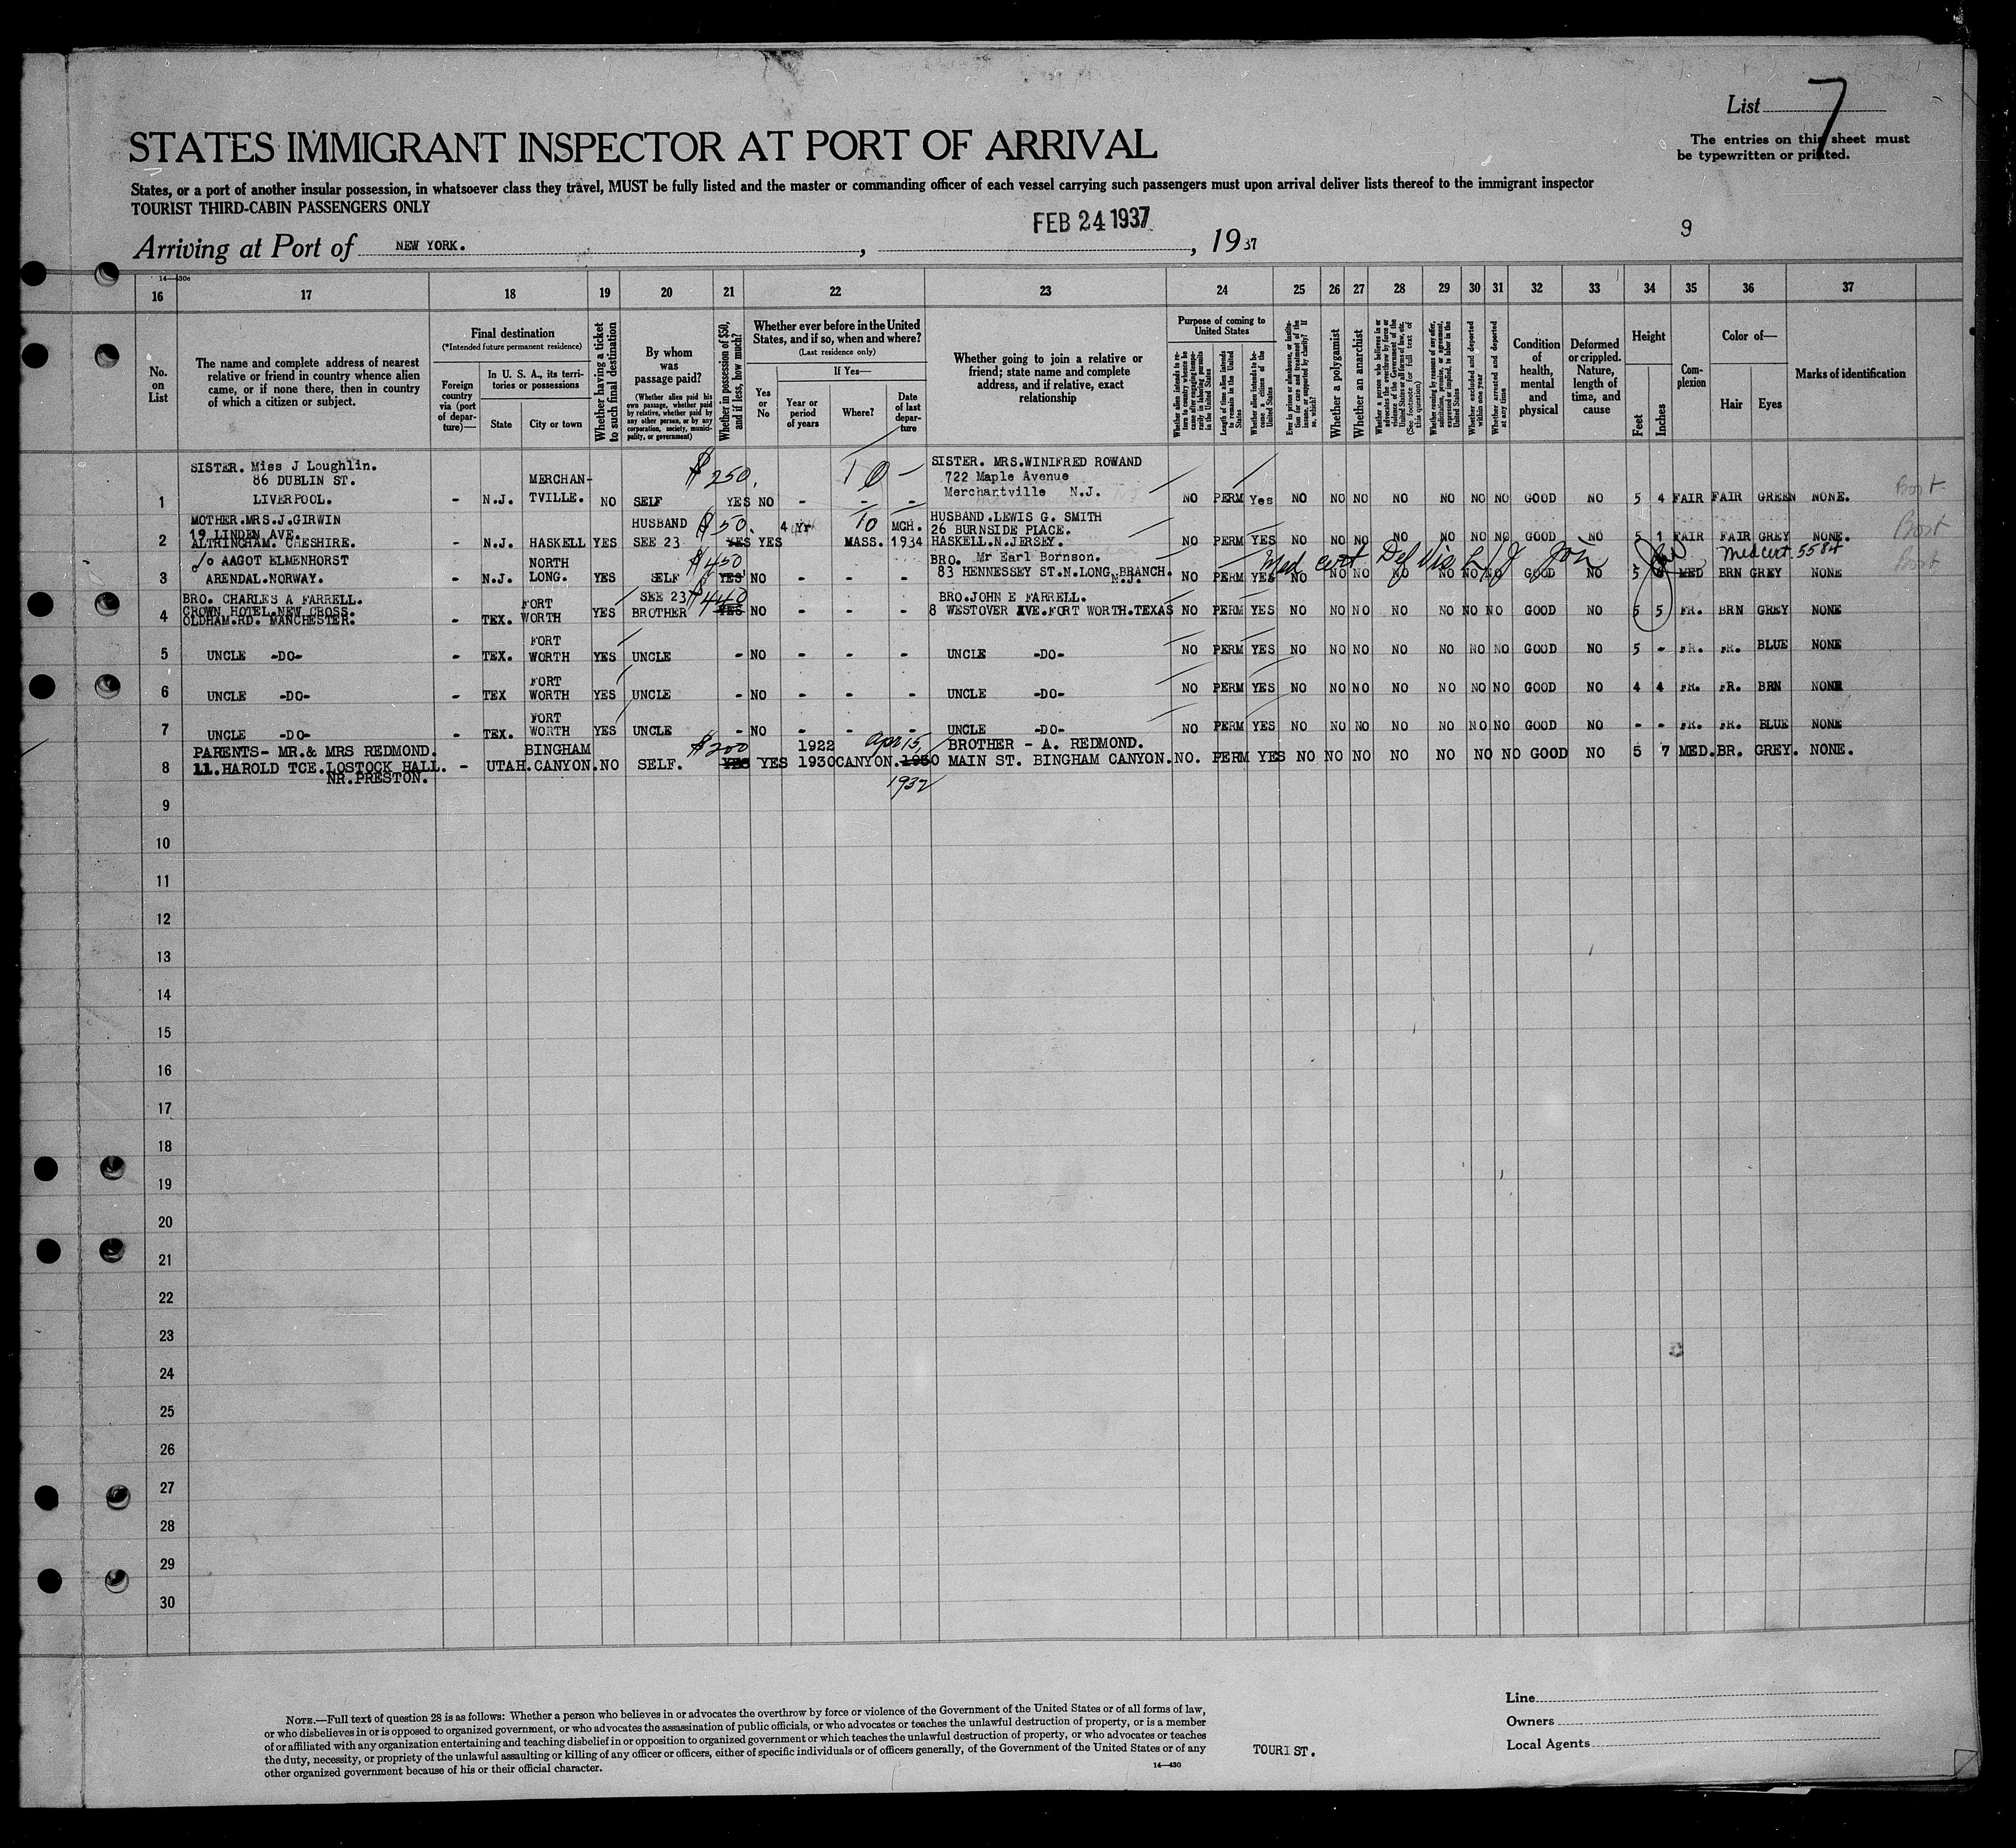 List 7
The entries on this sheet must
be typewritten or printed.
STATES IMMIGRANT INSPECTOR AT PORT OF ARRIVAL
States, or a port of another insular possession, in whatsoever class they travel, MUST be fully listed and the master or commanding officer of each vessel carrying such passengers must upon arrival deliver lists thereof to the immigrant inspector
TOURIST THIRD-CABIN PASSENGERS ONLY
Arriving at Port of NEW YORK. , FEB 24 1937 , 19 37
9
14-430a
16 17 18 19 20 21 22 23 24 25 26 27 28 29 30 31 32 33 34 35 36 37
No. on List
The name and complete address of nearest
relative or friend in country whence alien
came, or if none there, then in country
of which a citizen or subject.
Final destination
(*Intended future permanent residence)
Foreign country via (port of departure)—
In U. S. A., its territories or possessions
State
City or town
Whether having a ticket to such final destination
By whom was passage paid?
(Whether alien paid his own passage, whether paid by relative, whether paid by any other person, or by any corporation, society, municipality, or government)
Whether in possession of $50, and if less, how much?
Whether ever before in the United States, and if so, when and where?
(Last residence only)
Yes or No
If Yes—
Year or period of years
Where?
Date of last departure
Whether going to join a relative or
friend; state name and complete
address, and if relative, exact
relationship
Purpose of coming to United States
Whether alien intends to return to country whence he came after engaging temporarily in laboring pursuits in the United States
Length of time alien intends to remain in the United States
Whether alien intends to become a citizen of the United States
Ever in prison or almshouse, or institution for care and treatment of the insane, or supported by charity? If so, which?
Whether a polygamist
Whether an anarchist
Whether a person who believes in or advocates the overthrow by force or violence of the Government of the United States or all forms of law, etc. (See footnote for full text of this question)
Whether coming by reason of any offer, solicitation, promise, or agreement, expressed or implied, to labor in the United States
Whether excluded and deported within one year
Whether arrested and deported at any time
Condition of health, mental and physical
Deformed or crippled. Nature, length of time, and cause
Height
Feet Inches
Complexion
Color of—
Hair Eyes
Marks of identification
SISTER. Miss J Loughlin. MERCHAN- $250. 10 — SISTER. MRS.WINIFRED ROWAND
86 DUBLIN ST. 722 Maple Avenue
1 LIVERPOOL. - N.J. TVILLE. NO SELF YES NO - - - Merchantville N.J. NO PERM Yes NO NO NO NO NO NO NO GOOD NO 5 4 FAIR FAIR GREEN NONE. Bost
MOTHER.MRS.J.GIRWIN HUSBAND $50. 4 Yr 10 MCH. HUSBAND.LEWIS G. SMITH
19 LINDEN AVE. 26 BURNSIDE PLACE.
2 ALTRINGHAM. CHESHIRE. - N.J. HASKELL YES SEE 23 YES YES MASS. 1934 HASKELL.N.JERSEY. NO PERM YES NO NO NO NO NO NO NO GOOD NO 5 1 FAIR FAIR GREY NONE. Bost
AAGOT ELMENHORST NORTH $450 BRO. Mr Earl Bornson. Med cert Def Vis Med cert. 5584
3 ARENDAL.NORWAY. - N.J. LONG. YES SELF YES NO - - - 83 HENNESSEY ST.N.LONG.BRANCH. N.J. NO PERM YES NO NO NO NO NO NO NO GOOD NO 5 MED BRN GREY NONE Bost
BRO. CHARLES A FARRELL. FORT SEE 23 $440 BRO.JOHN E FARRELL.
CROWN HOTEL.NEW CROSS.
4 OLDHAM.RD. MANCHESTER. - TEX. WORTH YES BROTHER YES NO - - - 8 WESTOVER AVE.FORT WORTH.TEXAS NO PERM YES NO NO NO NO NO NO NO GOOD NO 5 5 FR. BRN GREY NONE
FORT
5 UNCLE -DO- - TEX. WORTH YES UNCLE - NO - - - UNCLE -DO- NO PERM YES NO NO NO NO NO NO NO GOOD NO 5 - FR. FR. BLUE NONE
FORT
6 UNCLE -DO- - TEX WORTH YES UNCLE - NO - - - UNCLE -DO- NO PERM YES NO NO NO NO NO NO NO GOOD NO 4 4 FR. FR. BRN NONE
FORT
7 UNCLE -DO- - TEX. WORTH YES UNCLE - NO - - - UNCLE -DO- NO PERM YES NO NO NO NO NO NO NO GOOD NO - - FR. FR. BLUE NONE
PARENTS- MR.& MRS REDMOND. BINGHAM $200 1922 Apr 15, BROTHER - A. REDMOND.
8 11.HAROLD TCE.LOSTOCK HALL. - UTAH.CANYON.NO SELF. YES YES 1930 CANYON.1930 MAIN ST. BINGHAM CANYON.NO. PERM YES NO NO NO NO NO NO NO GOOD NO 5 7 MED.BR. GREY. NONE.
NR.PRESTON. 1932
9
10
11
12
13
14
15
16
17
18
19
20
21
22
23
24
25
26
27
28
29
30
NOTE.—Full text of question 28 is as follows: Whether a person who believes in or advocates the overthrow by force or violence of the Government of the United States or of all forms of law,
or who disbelieves in or is opposed to organized government, or who advocates the assassination of public officials, or who advocates or teaches the unlawful destruction of property, or is a member
of or affiliated with any organization entertaining and teaching disbelief in or opposition to organized government or which teaches the unlawful destruction of property, or who advocates or teaches
the duty, necessity, or propriety of the unlawful assaulting or killing of any officer or officers, either of specific individuals or of officers generally, of the Government of the United States or of any
other organized government because of his or their official character.
14—430
TOURIST.
Line
Owners
Local Agents